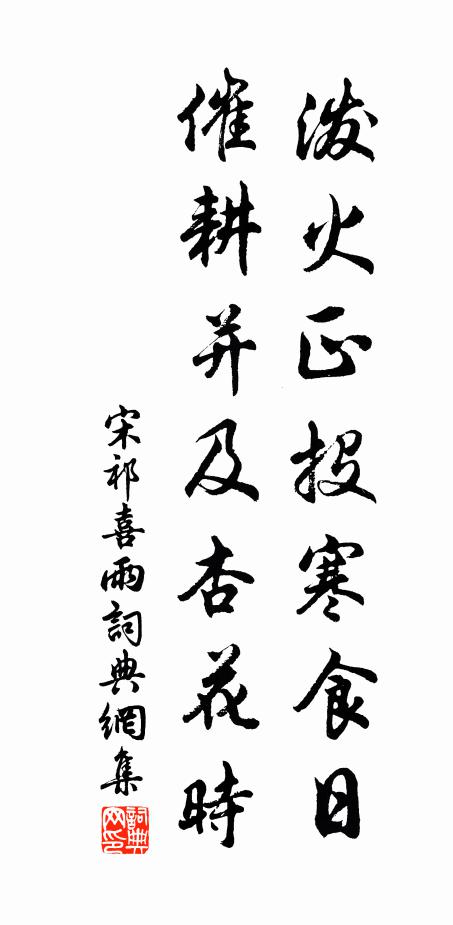 泼火正投寒食日
催耕并及杏花時
宋祁喜雨詞典網集
詞典网印